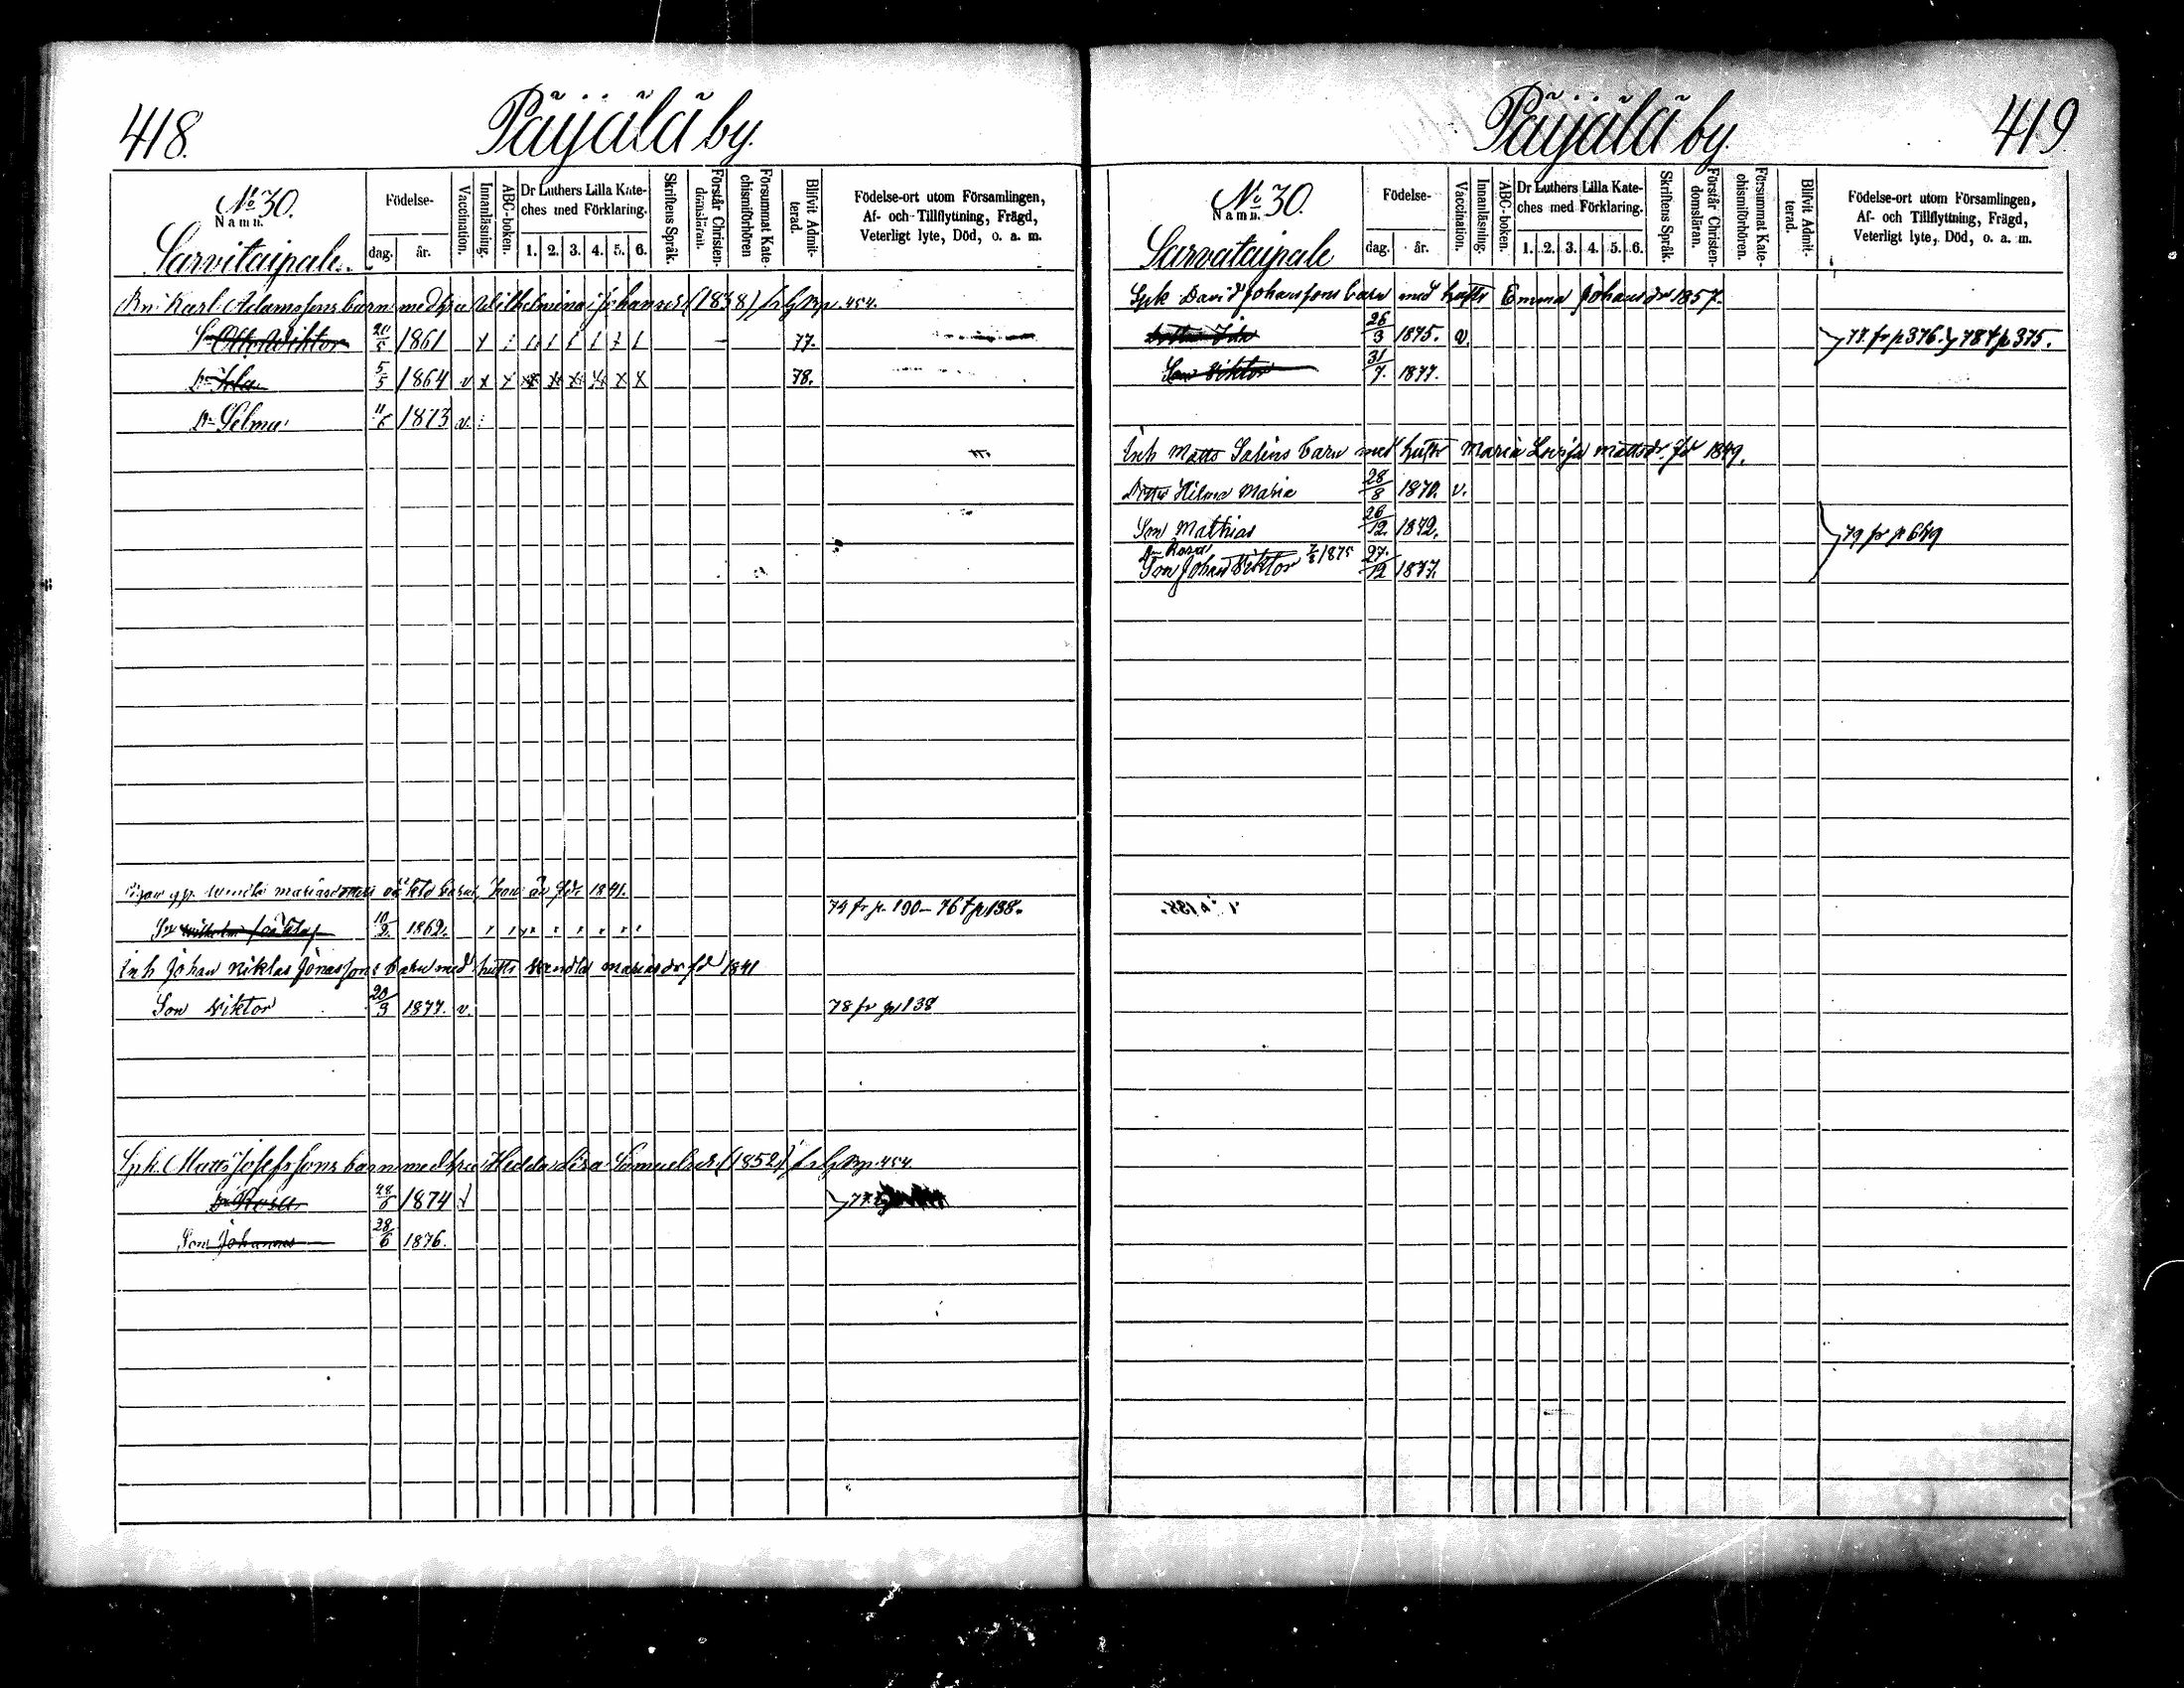 418.
Päijälä by.
No 30.
Namn.
Sarvitaipale.
Födelse-
dag.
år.
Vaccination.
Innanläsning.
ABC-boken.
Dr Luthers Lilla Kate-
ches med Förklaring.
1. 2. 3. 4. 5. 6.
Skriftens Språk.
Förstår Christen-
domsläran.
Försummat Kate-
chismiförhören
Blifvit Admit-
terad.
Födelse-ort utom Församlingen,
Af- och Tillflyttning, Frägd,
Veterligt lyte, Död, o. a. m.
Bn: Karl Adamssons barn med hu Wilhelmina Johansd. (1838) p. 454.
S Otto Wiktor 20/5 1861 77.
Dr Ida 5/5 1864 v x x x x x x x x 78.
Dr Selma 11/6 1873 v.
oäkta barn, hon är fdr 1841.
Son Wilhelm 10/2. 1862. 74 fr p. 190 – 76 t p 138.
Inh Johan Niklas Jonassons barn med hustr Wendla mariasdr fd 1841
Son Viktor 20/3 1877. v. 78 fr p 138
Spk. Matts Josefssons barn med hu Hedda Lisa Samuelsd. (1852) p. 454.
Dr Rosa 28/6 1874 77.
Son Johannes 28/6 1876.
Päijälä by.
419.
No 30.
Namn.
Sarvataipale
Födelse-
dag.
år.
Vaccination.
Innanläsning.
ABC-boken.
Dr Luthers Lilla Kate-
ches med Förklaring.
1. 2. 3. 4. 5. 6.
Skriftens Språk.
Förstår Christen-
domsläran.
Försummat Kate-
chismiförhören.
Blifvit Admit-
terad.
Födelse-ort utom Församlingen,
Af- och Tillflyttning, Frägd,
Veterligt lyte, Död, o. a. m.
Spk David Johanssons barn med hustr Emma Johansdr 1857.
26/3 1875. v. 77 fr p 376. 78 t p 375.
Son Viktor 31/7. 1877.
Inh Matts Salins barn med hustr Maria Lovisa mattsdr. fdr 1849.
Dottr Hilma Maria 28/8 1870. v.
Son Mathias 26/12. 1872. 79 fr p 649
Dr Rosa 1875
Son Johan Viktor 27/12 1877.